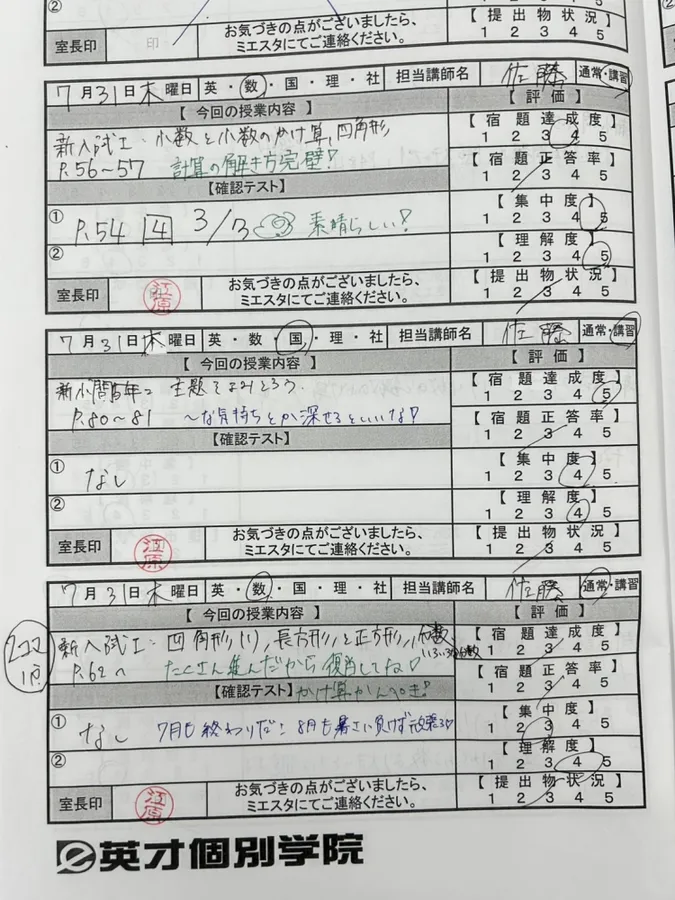 ②
室長印
印
お気づきの点がございましたら、
ミエスタにてご連絡ください。
【 提 出 物 状 況 】
1 2 3 4 5
7月31日 木 曜日 英・数・国・理・社 担当講師名 佐藤 通常・講習
【 今回の授業内容 】 【 評 価 】
新入試I: 小数と小数のかけ算, 四角形
P.56〜57 計算の解き方完璧!
【 宿 題 達 成 度 】
1 2 3 4 5
【 宿 題 正 答 率 】
1 2 3 4 5
【確認テスト】
① P.54 4 3/3 素晴らしい!
②
【 集 中 度 】
1 2 3 4 5
【 理 解 度 】
1 2 3 4 5
室長印 江原
お気づきの点がございましたら、
ミエスタにてご連絡ください。
【 提 出 物 状 況 】
1 2 3 4 5
7月31日 木 曜日 英・数・国・理・社 担当講師名 佐藤 通常・講習
【 今回の授業内容 】 【 評 価 】
主題をよみとろう.
P.80〜81 〜な気持ちとか深せるといいな!
【 宿 題 達 成 度 】
1 2 3 4 5
【 宿 題 正 答 率 】
1 2 3 4 5
【確認テスト】
① なし
②
【 集 中 度 】
1 2 3 4 5
【 理 解 度 】
1 2 3 4 5
室長印 江原
お気づきの点がございましたら、
ミエスタにてご連絡ください。
【 提 出 物 状 況 】
1 2 3 4 5
7月31日 木 曜日 英・数・国・理・社 担当講師名 佐藤 通常・講習
【 今回の授業内容 】 【 評 価 】
2コマ
新入試I: 四角形(1), 長方形と正方形, 分数
P.62へ たくさん進んだから復習してね!
【 宿 題 達 成 度 】
1 2 3 4 5
【 宿 題 正 答 率 】
1 2 3 4 5
【確認テスト】 かけ算かんぺき!
① なし 7月も終わりだ! 8月も暑さに負けず
②
【 集 中 度 】
1 2 3 4 5
【 理 解 度 】
1 2 3 4 5
室長印 江原
お気づきの点がございましたら、
ミエスタにてご連絡ください。
【 提 出 物 状 況 】
1 2 3 4 5
英才個別学院